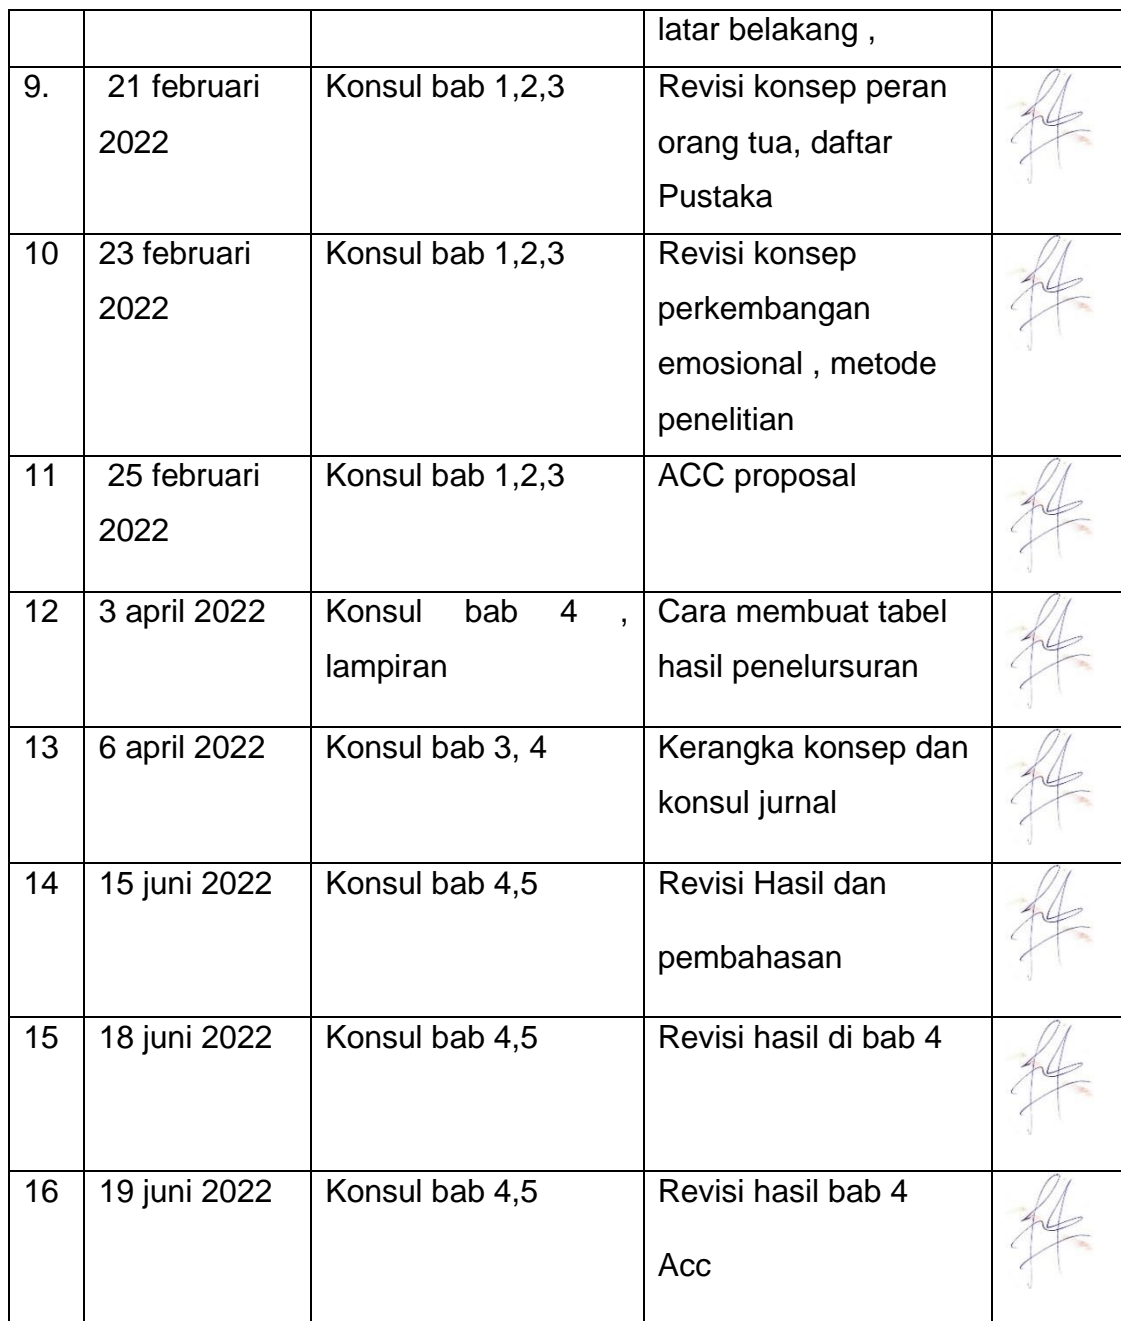 latar belakang ,
9. 21 februari Konsul bab 1,2,3 Revisi konsep peran
2022 orang tua, daftar
Pustaka
10 23 februari Konsul bab 1,2,3 Revisi konsep
2022 perkembangan
emosional , metode
penelitian
11 25 februari Konsul bab 1,2,3 ACC proposal
2022
12 3 april 2022 Konsul bab 4 , Cara membuat tabel
lampiran hasil penelursuran
13 6 april 2022 Konsul bab 3, 4 Kerangka konsep dan
konsul jurnal
14 15 juni 2022 Konsul bab 4,5 Revisi Hasil dan
pembahasan
15 18 juni 2022 Konsul bab 4,5 Revisi hasil di bab 4
16 19 juni 2022 Konsul bab 4,5 Revisi hasil bab 4
Acc